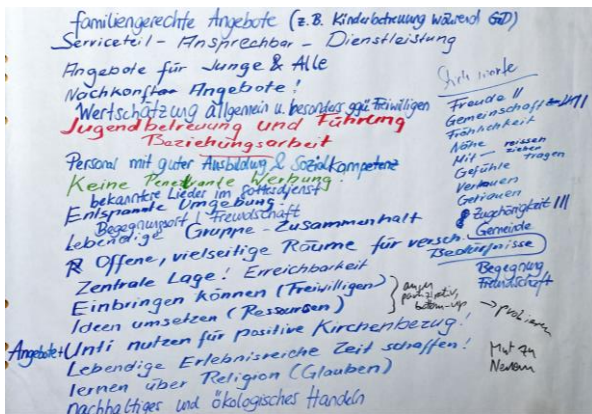 familiengerechte Angebote (z.B. Kinderbetreuung während GD)
Serviceteil - Ansprechbar - Dienstleistung
Angebote für Junge & Alle
Nachkonf Angebote!
Wertschätzung allgemein u. besonders ggü Freiwilligen
Jugendbetreuung und Führung
Beziehungsarbeit
Personal mit guter Ausbildung & Sozialkompetenz
Keine Penetrante Werbung!
bekannte Lieder im Gottesdienst
Entspannte Umgebung
Begegnungsort | Freundschaft
Lebendige Gruppe - Zusammenhalt
Offene, vielseitige Räume für versch. Bedürfnisse
Zentrale Lage! Erreichbarkeit
Einbringen können (Freiwilligen)
Ideen umsetzen (Ressourcen)
partizipativ,
bottom-up
Angebote + Unti nutzen für positive Kirchenbezug!
Lebendige Erlebnisreiche Zeit schaffen!
lernen über Religion (Glauben)
nachhaltiges und ökologisches Handeln
Stichworte
Freude II
Gemeinschaft
Fröhlichkeit
Nähe
Mit - reissen
ziehen
tragen
Gefühle
Vertrauen
Getrauen
Zughörigkeit III
Gemeinde
Begegnung
Freundschaft
→ probieren
Mut zu
Neuem